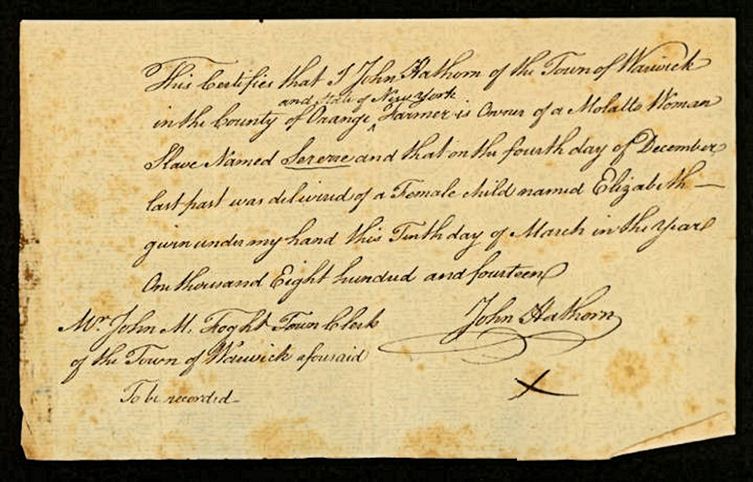 This Certifies that I John Hathorn of the Town of Warwick
and State of New York
in the County of Orange ^ Farmer is Owner of a Molatto Woman
Slave Named Sererre and that on the fourth day of December
last past was delivered of a Female child named Elizabeth —
given under my hand this Tenth day of March in the Year
One thousand Eight hundred and fourteen
John Hathorn
Mr. John M. Foght Town Clerk
of the Town of Warwick aforesaid
To be recorded —
X